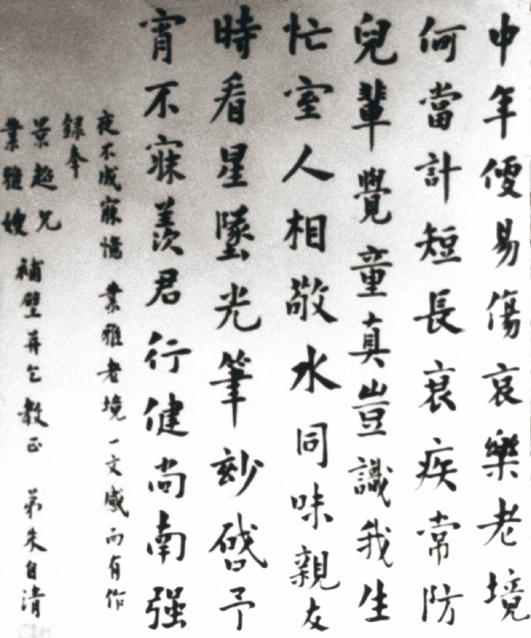 中年便易傷哀樂老境
何當計短長衰疾常防
兒輩覺童真豈識我生
忙室人相敬水同味親友
時看星墜光筆妙啓予
宵不寐羨君行健尚南强
夜不成寐憶 業雅老境一文感而有作
錄奉
景超兄
業雅嫂 補壁并乞教正 弟朱自清